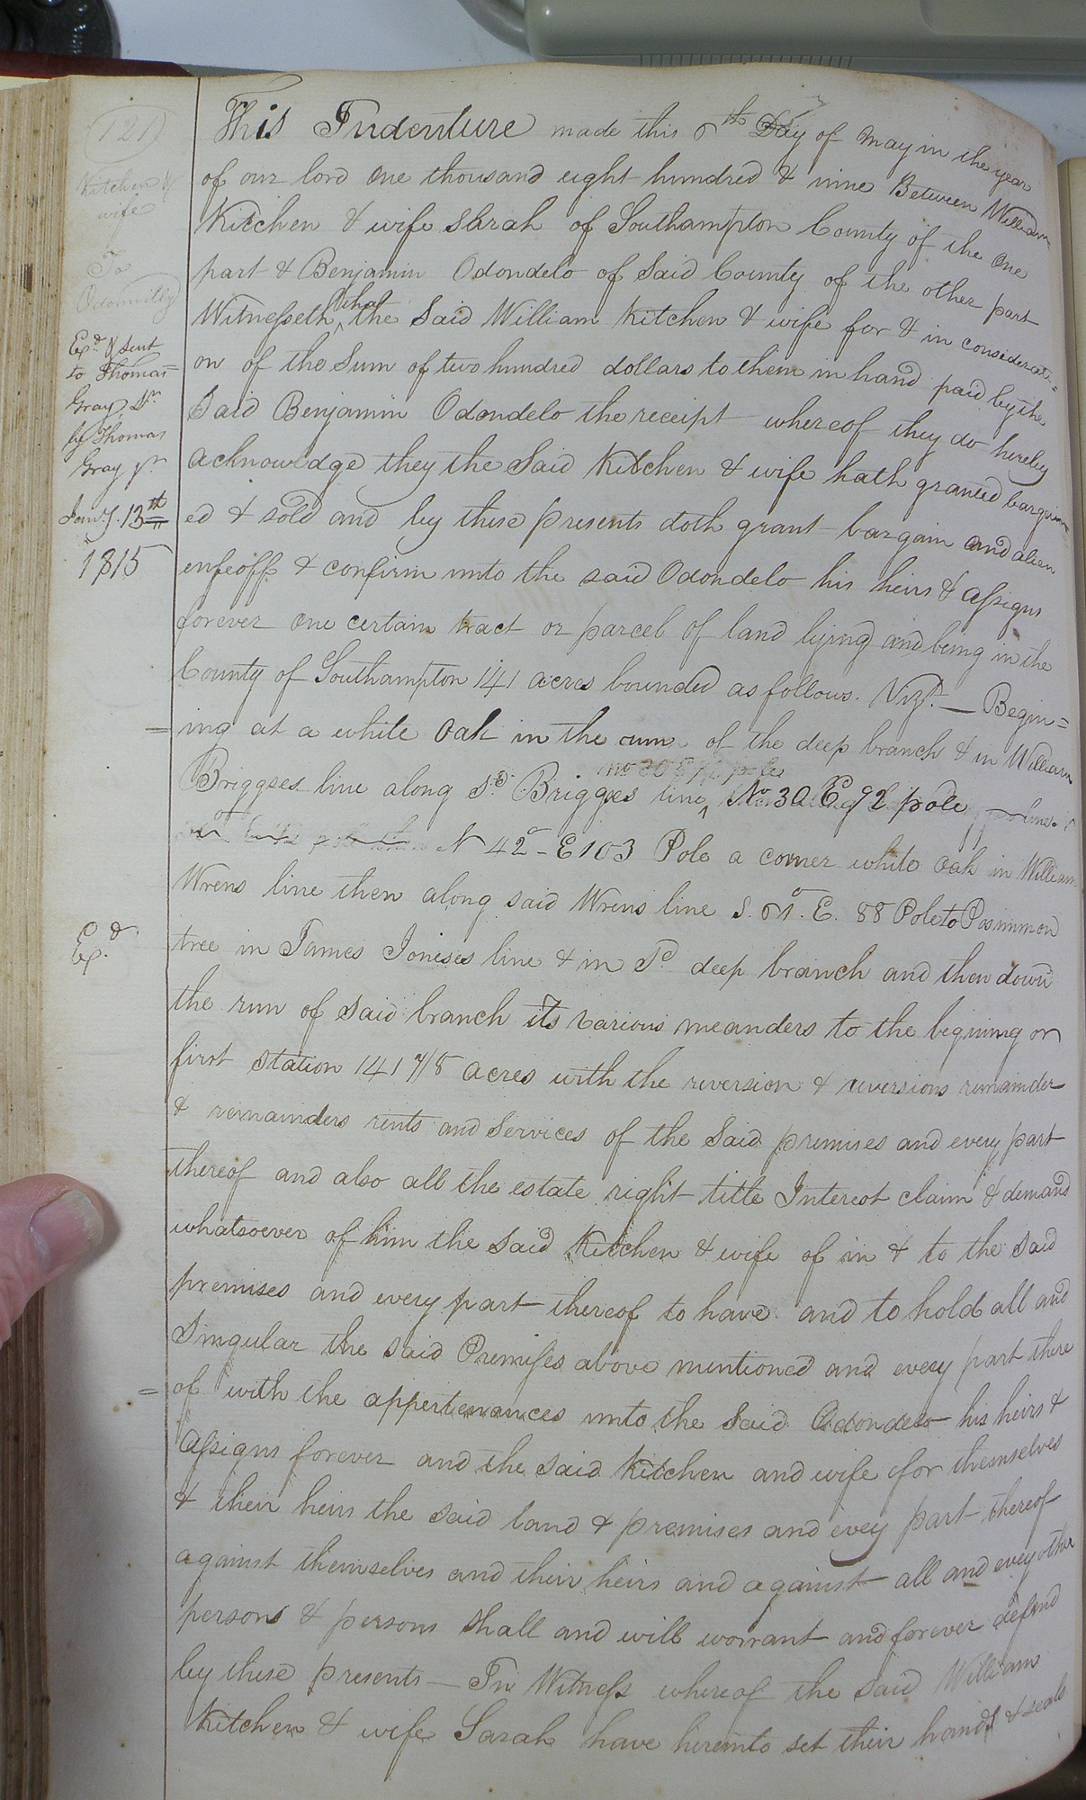 121
Kitchen &
wife
To
Odomnelly
Exd. & sent
to Thomas
Gray Sr.
by Thomas
Gray jr.
Jany. 13th
1815
Exd.
This Indenture made this 6th Day of may in the year
of our lord One thousand eight hundred & nine Between William
Kitchen & wife Sarah of Southampton County of the One
part & Benjamin Odondelo of Said County of the other part
Witnesseth that the Said William Kitchen & wife for & in considerati=
on of the Sum of two hundred dollars to them in hand paid by the
Said Benjamin Odondelo the receipt whereof they do hereby
acknowledge they the Said Kitchen & wife hath granted bargain
ed & sold and by these presents doth grant bargain and alien
enfeoff & confirm unto the said Odondelo his heirs & assigns
forever one certain tract or parcel of land lying and being in the
County of Southampton 141 acres bounded as follows. Vizt. — Begin=
ing at a white Oak in the run of the deep branch & in William
Briggses line along sd. Briggses line No. 30 E 92 pole
N 42° - E 103 Pole a corner white oak in William
Wrens line then along said Wrens line S. 61°. E. 88 Pole to Posimmon
tree in James Joneses line & in sd. deep branch and then down
the run of said branch its various meanders to the begining or
first station 141 7/8 acres with the reversion & reversions remainder
& remainders rents and services of the said premises and every part
thereof and also all the estate right title Interest claim & demand
whatsoever of him the said Kitchen & wife of in & to the said
premises and every part thereof to have and to hold all and
Singular the said Premises above mentioned and every part there
of with the appertenances unto the said Odondelo his heirs &
assigns forever and the said Kitchen and wife for themselves
& their heirs the said land & premises and evey part thereof
against themselves and their heirs and against all and evey other
persons & persons shall and will worrant and forever defend
by these presents — In Witness whereof the said William
Kitchen & wife Sarah have hereinto set their hands & seals